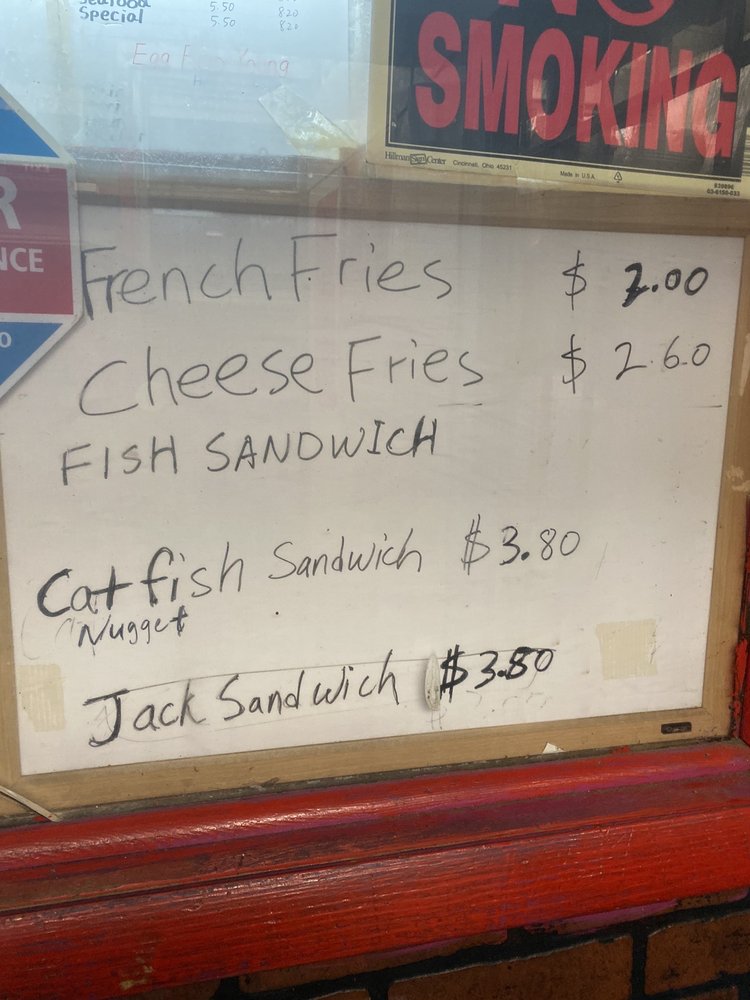 Seafood 5.50 8.20
Special 5.50 8.20
SMOKING
Hillman Sign Center Cincinnati, Ohio 45231
Made in U.S.A.
R
NCE
French Fries $ 2.00
Cheese Fries $ 2.60
FISH SANDWICH
Catfish Sandwich $3.80
Nugget
Jack Sandwich $3.80